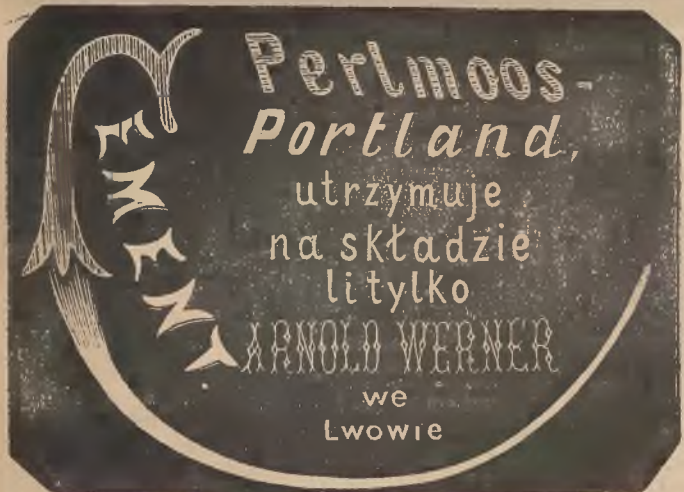 CEMENT.
Perlmoos-
Portland,
utrzymuje
na składzie
li tylko
ARNOLD WERNER
we
Lwowie